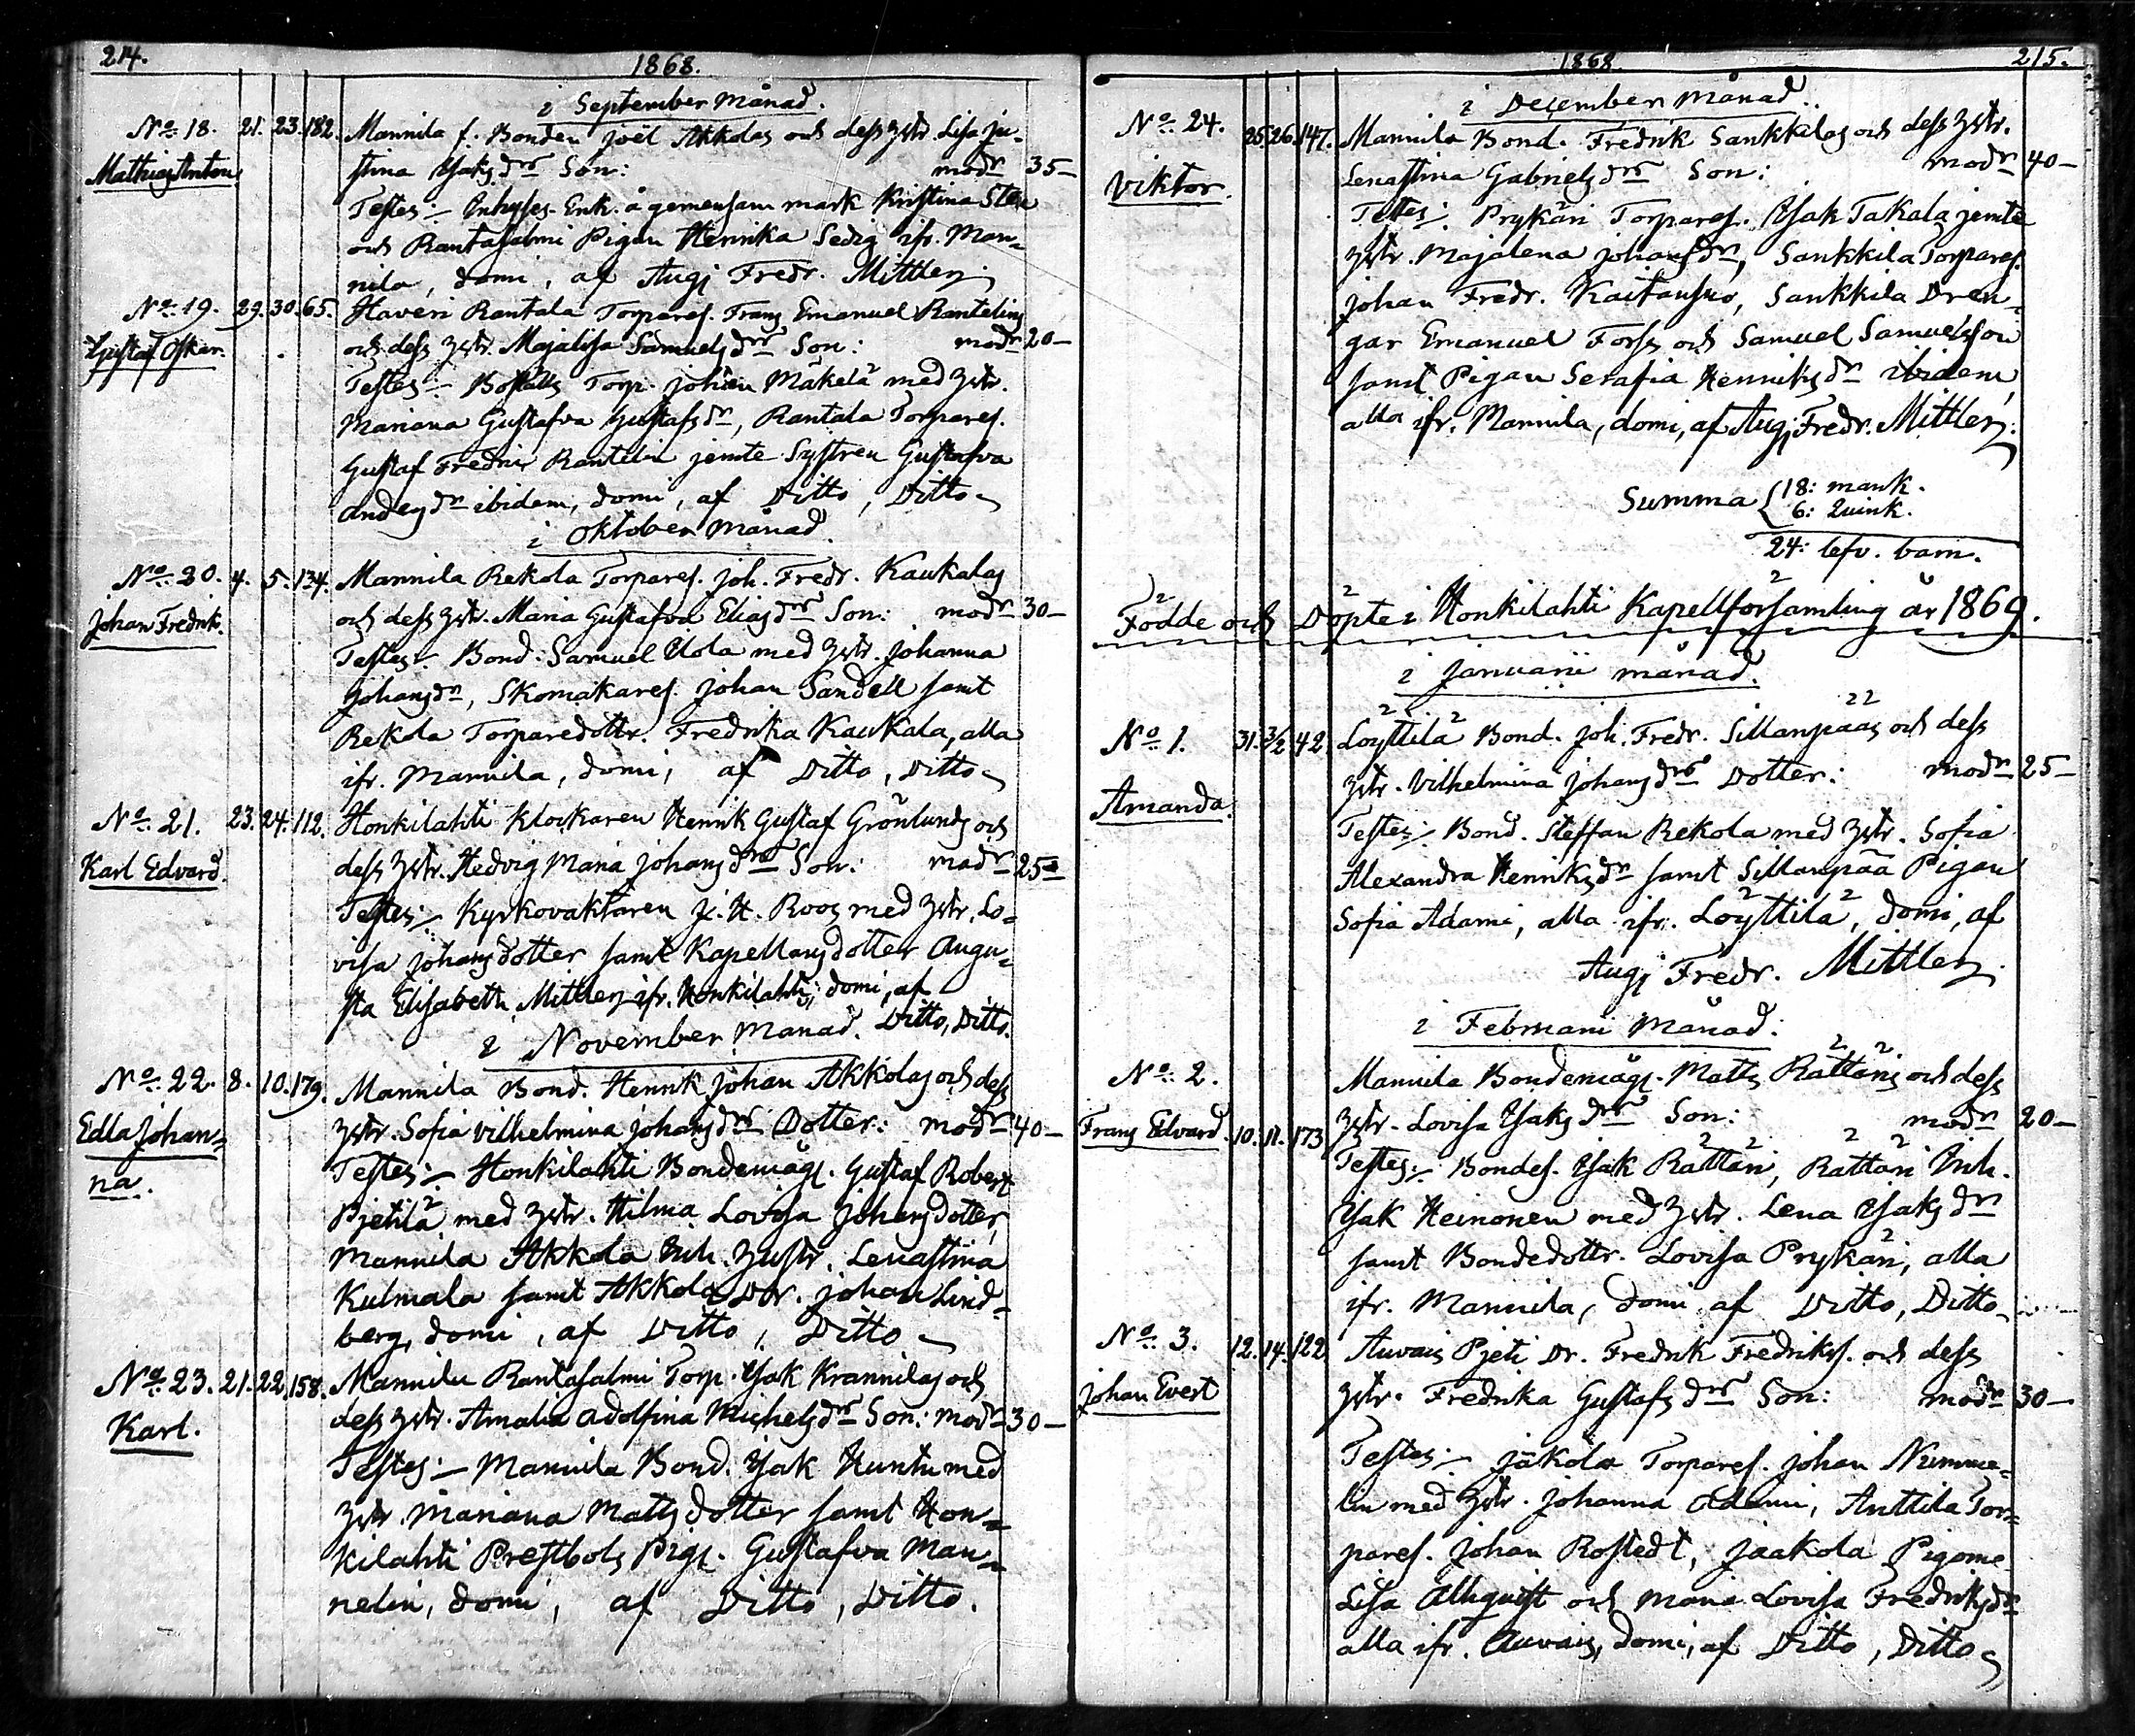 214.
1868.
i September månad.
No 18. 21. 23. 182. Mannila f. Bonden Joël Akkolas och dess hstr. Lisa Ju-
Mathias Anton. stina Isaksdrs Son: modr 35—
Testes:— Inhyses Enk. å gemensam mark Kristina Sten
och Rantasalmi Pigan Henrika Sedig ifr. Man-
nila, domi, af Aug. Fredr. Mittler.
No 19. 29. 30. 65. Haveri Rantala Torpares. Frans Emanuel Rantelins
Gustaf Oskar. och dess hstr. Majalisa Samuelsdrs Son: modr 20—
Testes:— Torp. Johan Mäkelä med hstr.
Mariana Gustafva Gustafsdr, Rantala Torpares.
Gustaf Fredrik Rantelin jemte Systren Gustafva
Andersdr ibidem, domi, af Ditto, Ditto
i Oktober månad.
No 20. 4. 5. 134. Mannila Rekola Torpares. Joh. Fredr. Kaukalas
Johan Fredrik. och dess hstr. Maria Gustafva Eliasdrs Son: modr 30—
Testes:— Bond: Samuel Uola med hstr. Johanna
Johansdr, Skomakares. Johan Sandell samt
Rekola Torparedottr. Fredrika Kaukala, alla
ifr. Mannila, domi, af Ditto, Ditto
No 21. 23. 24. 112. Honkilahti Klockaren Henrik Gustaf Grönlunds och
Karl Edvard. dess hstr. Hedvig Maria Johansdrs Son: modr 25—
Testes:— Kyrkovaktaren J. H. Roos med hstr. Lo-
visa Johansdotter samt Kapellansdotter Augu-
sta Elisabeth Mittler ifr. Honkilahti, domi, af
Ditto, Ditto.
i November månad.
No 22. 8. 10. 179. Mannila Bond. Henrik Johan Akkolas och dess
Edla Johan- hstr. Sofia Vilhelmina Johansdrs Dotter: modr 40—
na. Testes:— Honkilahti Bondemågs. Gustaf Robert
Pjetilä med hstr. Hilma Lovisa Johansdotter,
Mannila Akkola Inh. hustr. Lenastina
Kulmala samt Akkola Dr. Johan Lind-
berg, domi, af Ditto, Ditto
No 23. 21. 22. 158. Mannila Rantasalmi Torp. Isak Krannilas och
Karl. dess hstr. Amalia Adolfina Michelsdrs Son: modr 30—
Testes:— Mannila Bond. Isak Huntu med
hstr. Mariana Mattsdotter samt Hon-
kilahti Prestbols Pig. Gustafva Man-
nelin, domi, af Ditto, Ditto.
1868.
215.
i December månad.
No 24. 25. 26. 147. Mannila Bond. Fredrik Sankkilas och dess hstr.
Viktor. Lenastina Gabrielsdrs Son: modr 40—
Testes:— Prykäri Torpares. Isak Takala jemte
hstr. Majalena Johansdr, Sankkila Torpares.
Johan Fredr. Kaitansuo, Sankkila Dren-
gar Emanuel Forss och Samuel Samuelsson
samt Pigan Serafia Henriksdr ibidem,
alla ifr. Mannila, domi, af Aug. Fredr. Mittler.
Summa { 18: mank.
6: Quink.
24: lefv. barn.
Födde och Döpte i Honkilahti Kapellförsamling år 1869.
i Januarii månad.
No 1. 31. 3/2 42. Löyttilä Bond. Joh. Fredr. Sillanpääs och dess
Amanda. hstr. Vilhelmina Johansdrs Dotter: modr 25—
Testes:— Bond. Steffan Rekola med hstr. Sofia
Alexandra Henriksdr samt Sillanpää Pigan
Sofia Adami, alla ifr. Löyttilä, domi, af
Aug. Fredr. Mittler.
i Februarii månad.
No 2. Mannila Bondemågs. Matts Rättäris och dess
Frans Edvard. 10. 11. 173 hstr. Lovisa Isaksdrs Son: modr 20—
Testes:— Bondes. Isak Rättäri, Rättäri Inh.
Isak Heinonen med hstr. Lena Isaksdr
samt Bondedottr. Lovisa Prykäri, alla
ifr. Mannila, domi, af Ditto, Ditto
No 3. 12. 14. 122. Auvais Pjeti Dr. Fredrik Fredrikss. och dess
Johan Evert hstr. Fredrika Gustafsdrs Son: modr 30—
Testes:— Jakola Torpares. Johan Numme-
lin med hstr. Johanna Adami, Anttila Tor-
pares. Johan Rostedt, Jaakola Pigorne
Lisa Ahlquist och Maria Lovisa Fredriksdr
alla ifr. Auvais, domi, af Ditto, Ditto